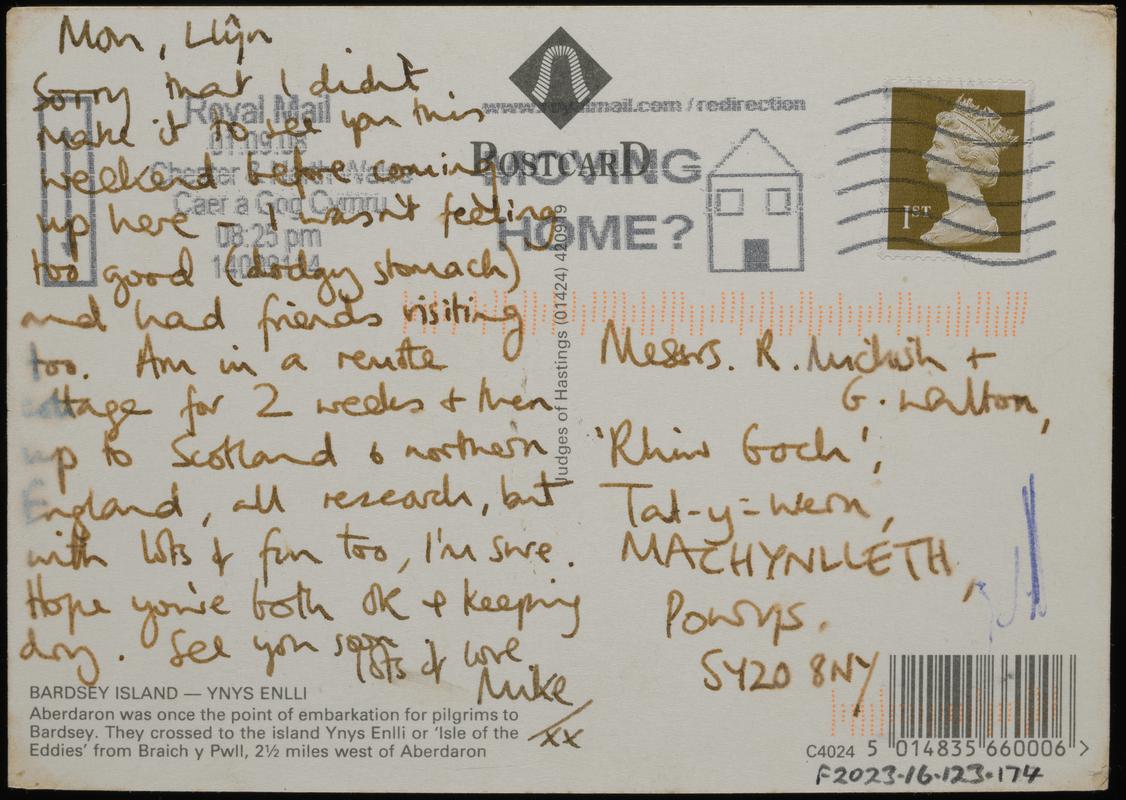 Mon, Llŷn
Sorry that I didn't
make it to see you this
weekend before coming
up here – I wasn't feeling
too good (dodgy stomach)
and had friends visiting
too. Am in a remote
cottage for 2 weeks & then
up to Scotland & northern
England, all research, but
with lots of fun too, I'm sure.
Hope you're both OK & keeping
dry. See you soon
lots of love
Mike
xx
BARDSEY ISLAND — YNYS ENLLI
Aberdaron was once the point of embarkation for pilgrims to
Bardsey. They crossed to the island Ynys Enlli or 'Isle of the
Eddies' from Braich y Pwll, 2½ miles west of Aberdaron
Royal Mail
01.09.08
Chester & North Wales
Caer a Gog Cymru
08:25 pm
www.royalmail.com/redirection
POSTCARD
MOVING
HOME?
1ST
Judges of Hastings (01424) 420919
Messrs. R. &
G. Walton,
'Rhiw Goch',
Tal-y-wern,
MACHYNLLETH,
Powys.
SY20 8NY
C4024 5 014835 660006 >
F2023.16.123.174